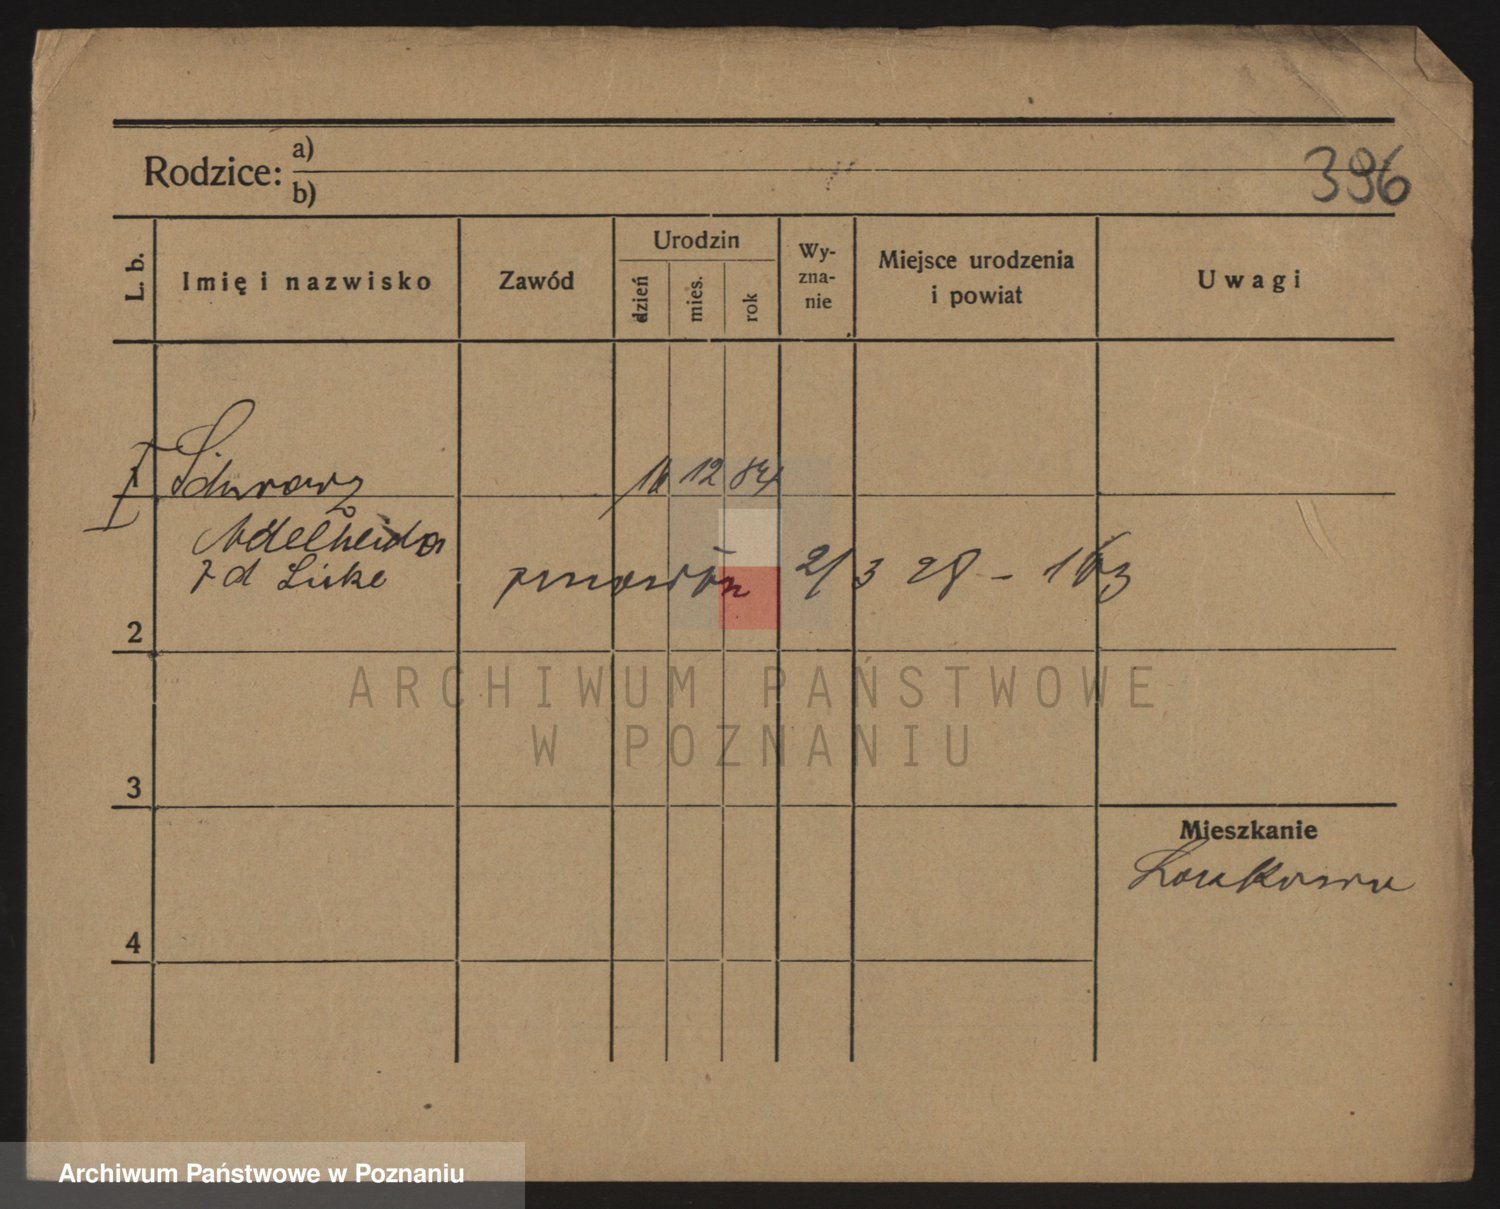 Rodzice: a)
b)
396
L. b.
Imię i nazwisko
Zawód
Urodzin
dzień
mies.
rok
Wy-
zna-
nie
Miejsce urodzenia
i powiat
Uwagi
1
16 12 84
Adelheida
z d Lüke
2
2/3 28 - 163
ARCHIWUM PAŃSTWOWE
W POZNANIU
3
Mieszkanie
4
Archiwum Państwowe w Poznaniu